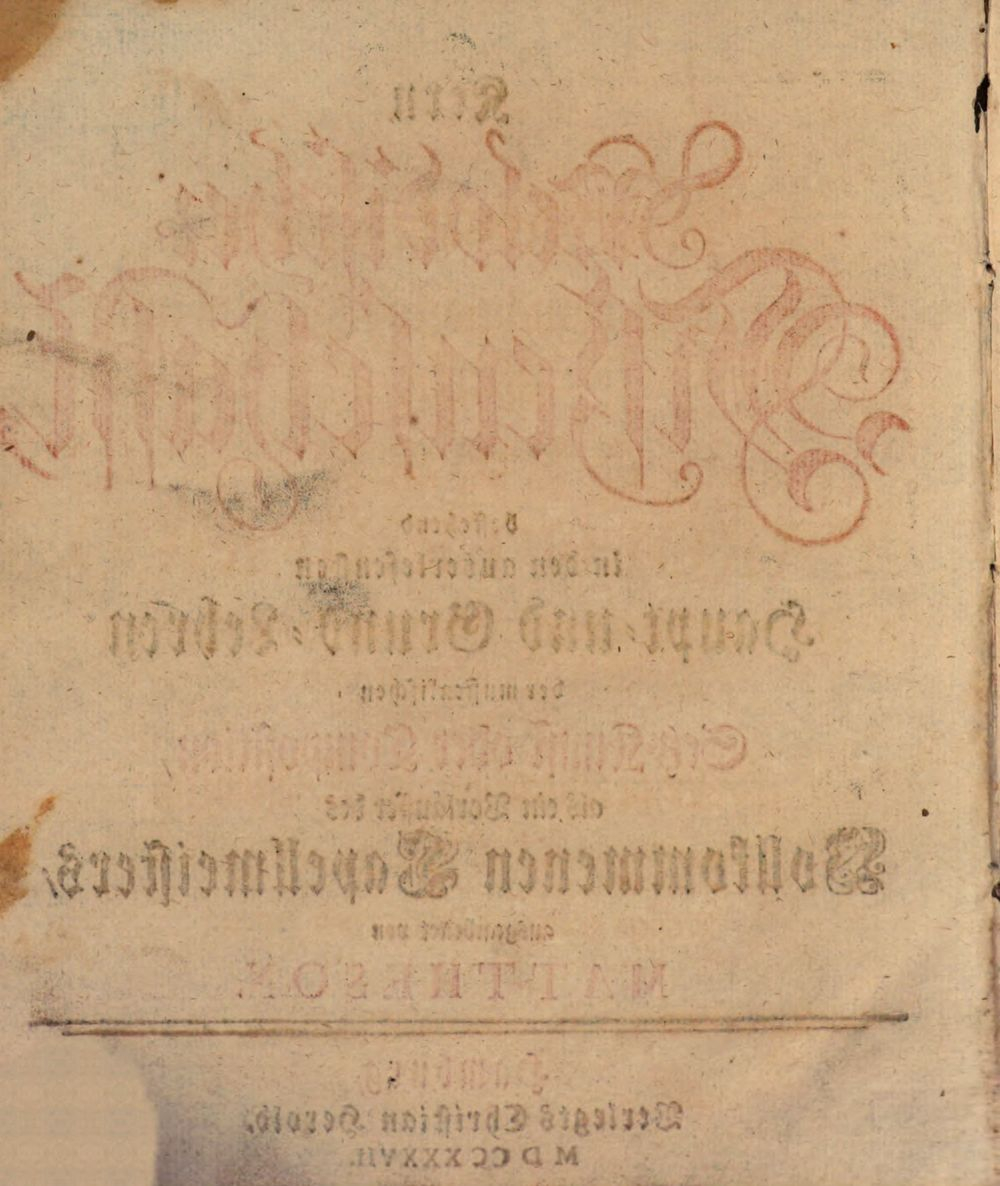 Kern
Melodischer
Wissenschafft
bestehend
in den auserlesensten
Haupt- und Grund-Lehren
der musicalischen
Setz-Kunst oder Composition,
als ein Vorläuffer des
Vollkommenen Capellmeisters,
ausgearbeitet von
MATTHESON.
Hamburg,
Verlegts Christian Herold,
MDCCXXXVII.